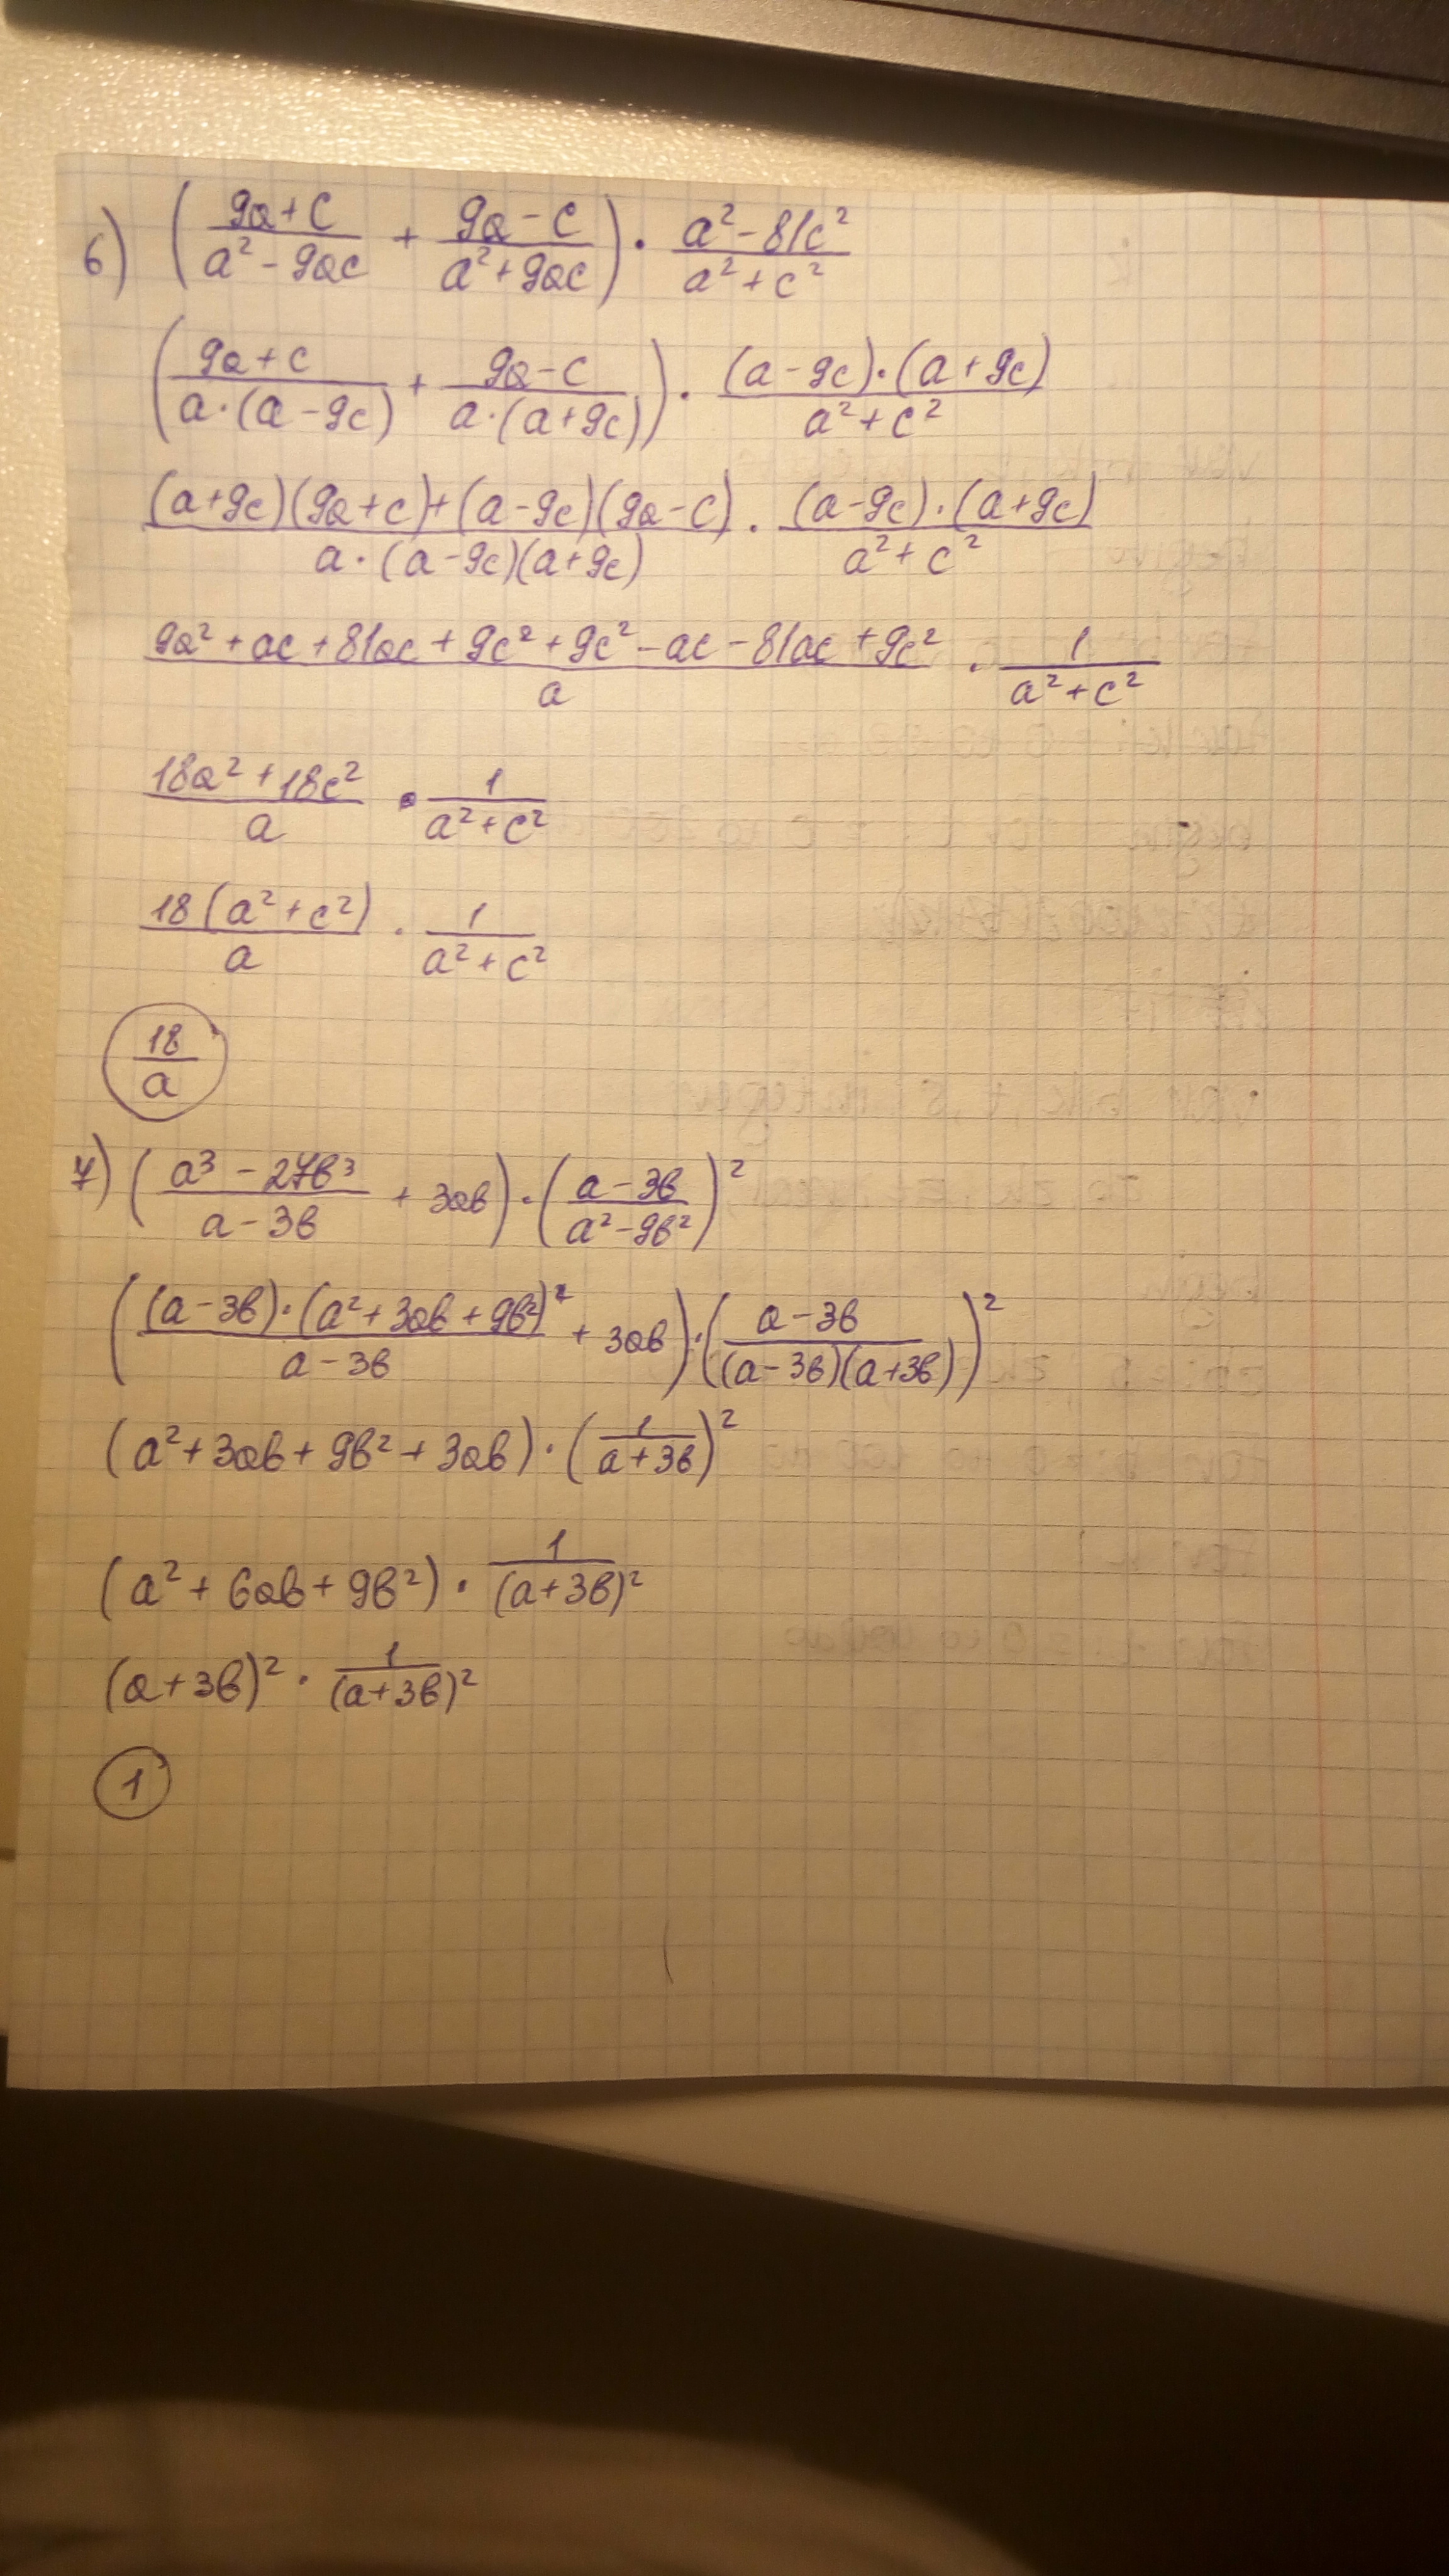 6) ( (9a+c)/(a² - 9ac) + (9a - c)/(a² + 9ac) ) · (a² - 81c²)/(a² + c²)
( (9a + c)/(a·(a - 9c)) + (9a - c)/(a·(a + 9c)) ) · ((a - 9c)·(a + 9c))/(a² + c²)
((a+9c)(9a+c)+(a-9c)(9a-c))/(a·(a-9c)(a+9c)) · ((a-9c)·(a+9c))/(a² + c²)
(9a² + ac + 81ac + 9c² + 9c² - ac - 81ac + 9c²)/a · 1/(a² + c²)
(18a² + 18c²)/a · 1/(a² + c²)
(18(a² + c²))/a · 1/(a² + c²)
18/a
7) ( (a³ - 27b³)/(a - 3b) + 3ab ) · ( (a - 3b)/(a² - 9b²) )²
( ((a - 3b)·(a² + 3ab + 9b²)²)/(a - 3b) + 3ab ) · ( (a - 3b)/((a - 3b)(a+3b)) )²
(a² + 3ab + 9b² + 3ab) · ( 1/(a + 3b) )²
(a² + 6ab + 9b²) · 1/(a + 3b)²
(a + 3b)² · 1/(a + 3b)²
1